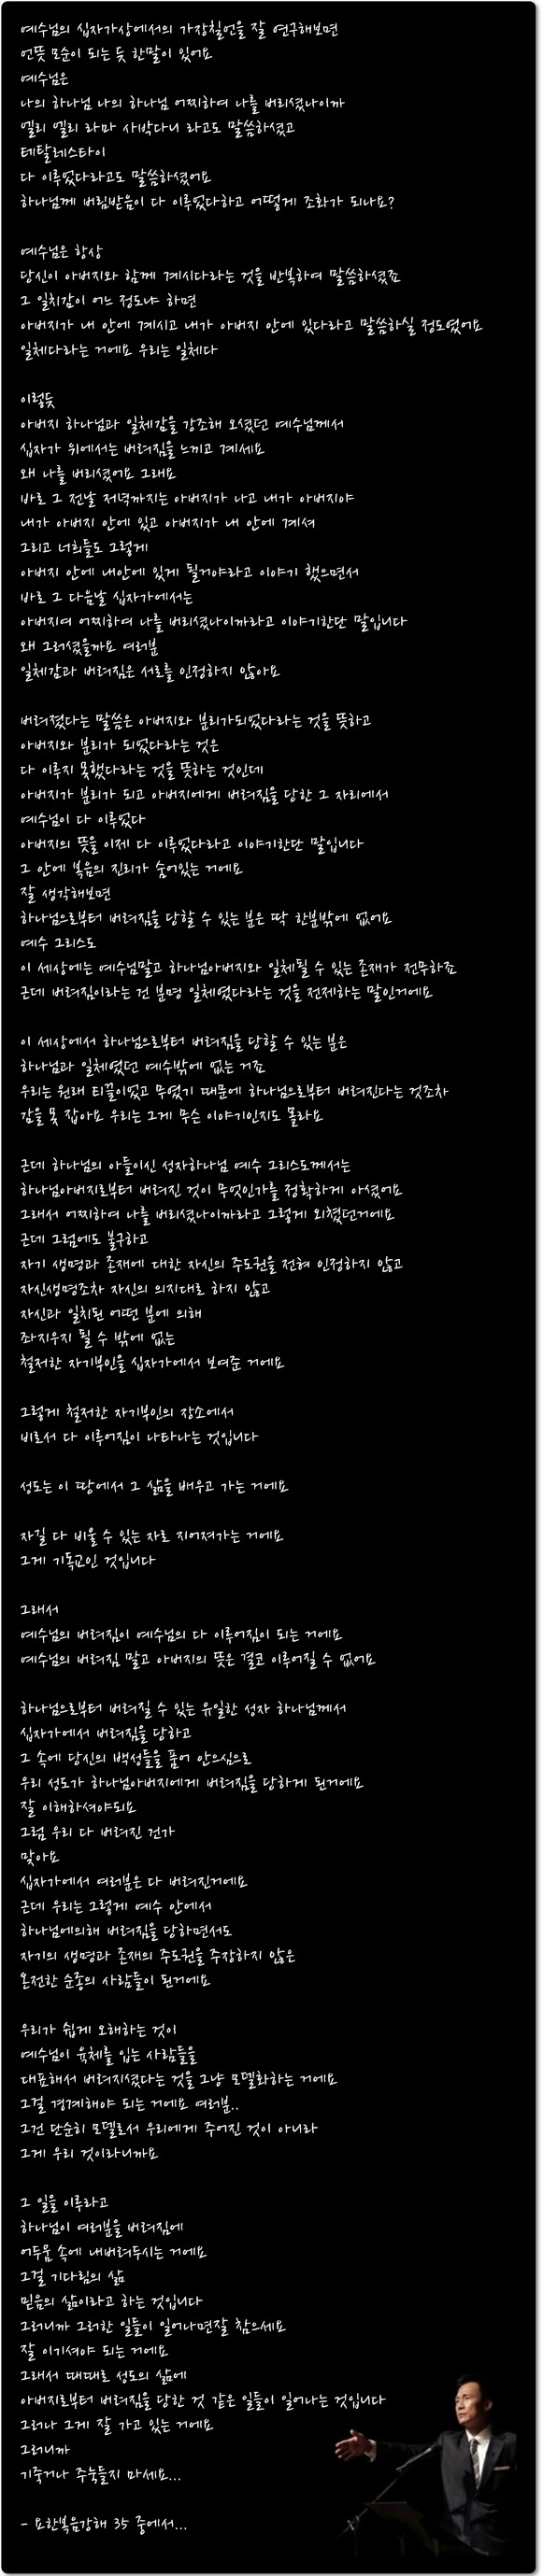 예수님의 십자가상에서의 가상칠언을 잘 연구해보면
언뜻 모순이 되는 듯 한말이 있어요
예수님은
나의 하나님 나의 하나님 어찌하여 나를 버리셨나이까
엘리 엘리 라마 사박다니 라고도 말씀하셨고
테탈레스타이
다 이루었다라고도 말씀하셨어요
하나님께 버림받음이 다 이루었다하고 어떻게 조화가 되나요?
예수님은 항상
당신이 아버지와 함께 계시다라는 것을 반복하여 말씀하셨죠
그 일치감이 어느 정도냐 하면
아버지가 내 안에 계시고 내가 아버지 안에 있다라고 말씀하실 정도였어요
일체다라는 거에요 우리는 일체다
이렇듯
아버지 하나님과 일체감을 강조해 오셨던 예수님께서
십자가 위에서는 버려짐을 느끼고 계세요
왜 나를 버리셨어요 그래요
바로 그 전날 저녁까지는 아버지가 나고 내가 아버지야
내가 아버지 안에 있고 아버지가 내 안에 계셔
그리고 너희들도 그렇게
아버지 안에 내안에 있게 될거야라고 이야기 했으면서
바로 그 다음날 십자가에서는
아버지여 어찌하여 나를 버리셨나이까라고 이야기한단 말입니다
왜 그러셨을까요 여러분
일체감과 버려짐은 서로를 인정하지 않아요
버려졌다는 말씀은 아버지와 분리가되었다라는 것을 뜻하고
아버지와 분리가 되었다라는 것은
다 이루지 못했다라는 것을 뜻하는 것인데
아버지가 분리가 되고 아버지에게 버려짐을 당한 그 자리에서
예수님이 다 이루었다
아버지의 뜻을 이제 다 이루었다라고 이야기한단 말입니다
그 안에 복음의 진리가 숨어있는 거에요
잘 생각해보면
하나님으로부터 버려짐을 당할 수 있는 분은 딱 한분밖에 없어요
예수 그리스도
이 세상에는 예수님말고 하나님아버지와 일체될 수 있는 존재가 전무하죠
근데 버려짐이라는 건 분명 일체였다라는 것을 전제하는 말인거에요
이 세상에서 하나님으로부터 버려짐을 당할 수 있는 분은
하나님과 일체였던 예수밖에 없는 거죠
우리는 원래 티끌이었고 무였기 때문에 하나님으로부터 버려진다는 것조차
감을 못 잡아요 우리는 그게 무슨 이야기인지도 몰라요
근데 하나님의 아들이신 성자하나님 예수 그리스도께서는
하나님아버지로부터 버려진 것이 무엇인가를 정확하게 아셨어요
그래서 어찌하여 나를 버리셨나이까라고 그렇게 외쳤던거에요
근데 그럼에도 불구하고
자기 생명과 존재에 대한 자신의 주도권을 전혀 인정하지 않고
자신생명조차 자신의 의지대로 하지 않고
자신과 일치된 어떤 분에 의해
좌지우지 될 수 밖에 없는
철저한 자기부인을 십자가에서 보여준 거에요
그렇게 철저한 자기부인의 장소에서
비로서 다 이루어짐이 나타나는 것입니다
성도는 이 땅에서 그 삶을 배우고 가는 거에요
자길 다 비울 수 있는 자로 지어져가는 거에요
그게 기독교인 것입니다
그래서
예수님의 버려짐이 예수님의 다 이루어짐이 되는 거에요
예수님의 버려짐 말고 아버지의 뜻은 결코 이루어질 수 없어요
하나님으로부터 버려질 수 있는 유일한 성자 하나님께서
십자가에서 버려짐을 당하고
그 속에 당신의 백성들을 품어 안으심으로
우리 성도가 하나님아버지에게 버려짐을 당하게 된거에요
잘 이해하셔야되요
그럼 우리 다 버려진 건가
맞아요
십자가에서 여러분은 다 버려진거에요
근데 우리는 그렇게 예수 안에서
하나님에의해 버려짐을 당하면서도
자기의 생명과 존재의 주도권을 주장하지 않은
온전한 순종의 사람들이 된거에요
우리가 쉽게 오해하는 것이
예수님이 육체를 입는 사람들을
대표해서 버려지셨다는 것을 그냥 모델화하는 거에요
그걸 경계해야 되는 거에요 여러분..
그건 단순히 모델로서 우리에게 주어진 것이 아니라
그게 우리 것이라니까요
그 일을 이루라고
하나님이 여러분을 버려짐에
어두움 속에 내버려두시는 거에요
그걸 기다림의 삶
믿음의 삶이라고 하는 것입니다
그러니까 그러한 일들이 일어나면잘 참으세요
잘 이기셔야 되는 거에요
그래서 때때로 성도의 삶에
아버지로부터 버려짐을 당한 것 같은 일들이 일어나는 것입니다
그러나 그게 잘 가고 있는 거에요
그러니까
기죽거나 주눅들지 마세요...
- 요한복음강해 35 중에서...